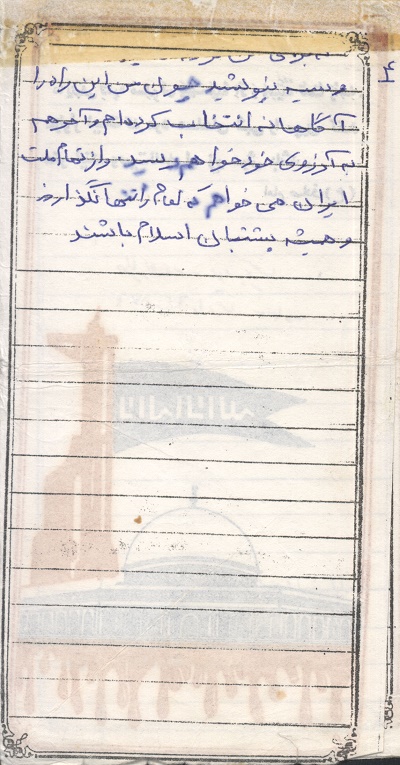 و سیه نپوشید چون من این راه را
آگاهانه انتخاب کرده‌ام و آخر هم
به آرزوی خود خواهم رسید. و از تمام ملت
ایران می خواهم که امام را تنها نگذارند
و همیشه پشتبان اسلام باشند
۴